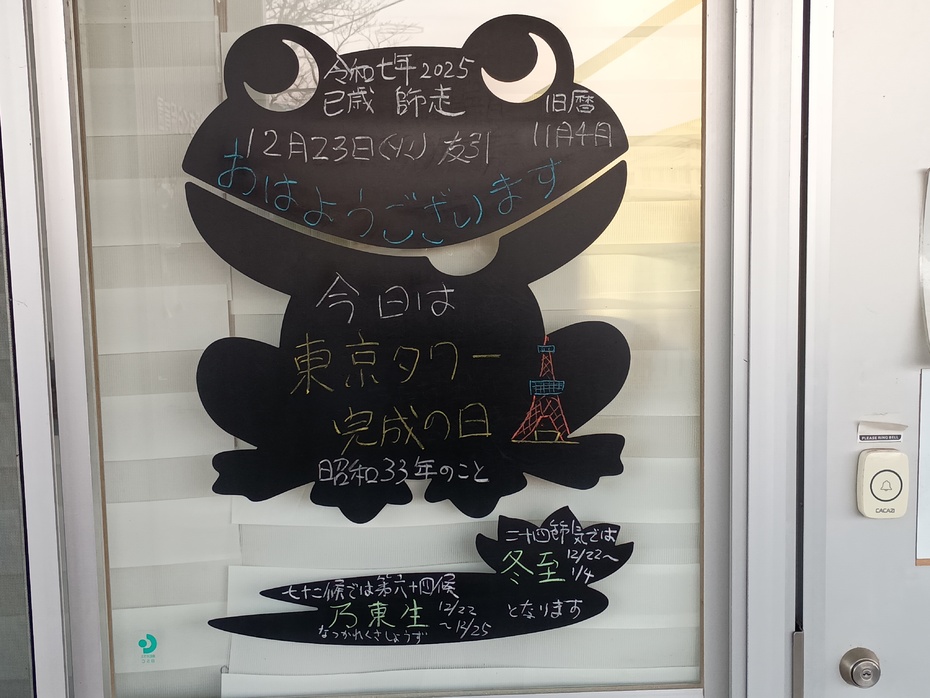 令和七年 2025
巳歳 師走
旧暦
11月4日
12月23日(火) 友引
おはようございます
今日は
東京タワー
完成の日
昭和33年のこと
二十四節気では
冬至 12/22〜
1/4
七十二候では第六十四候
乃東生 12/22
〜12/25
となります
なつかれくさしょうず
PLEASE RING BELL
CACAZI